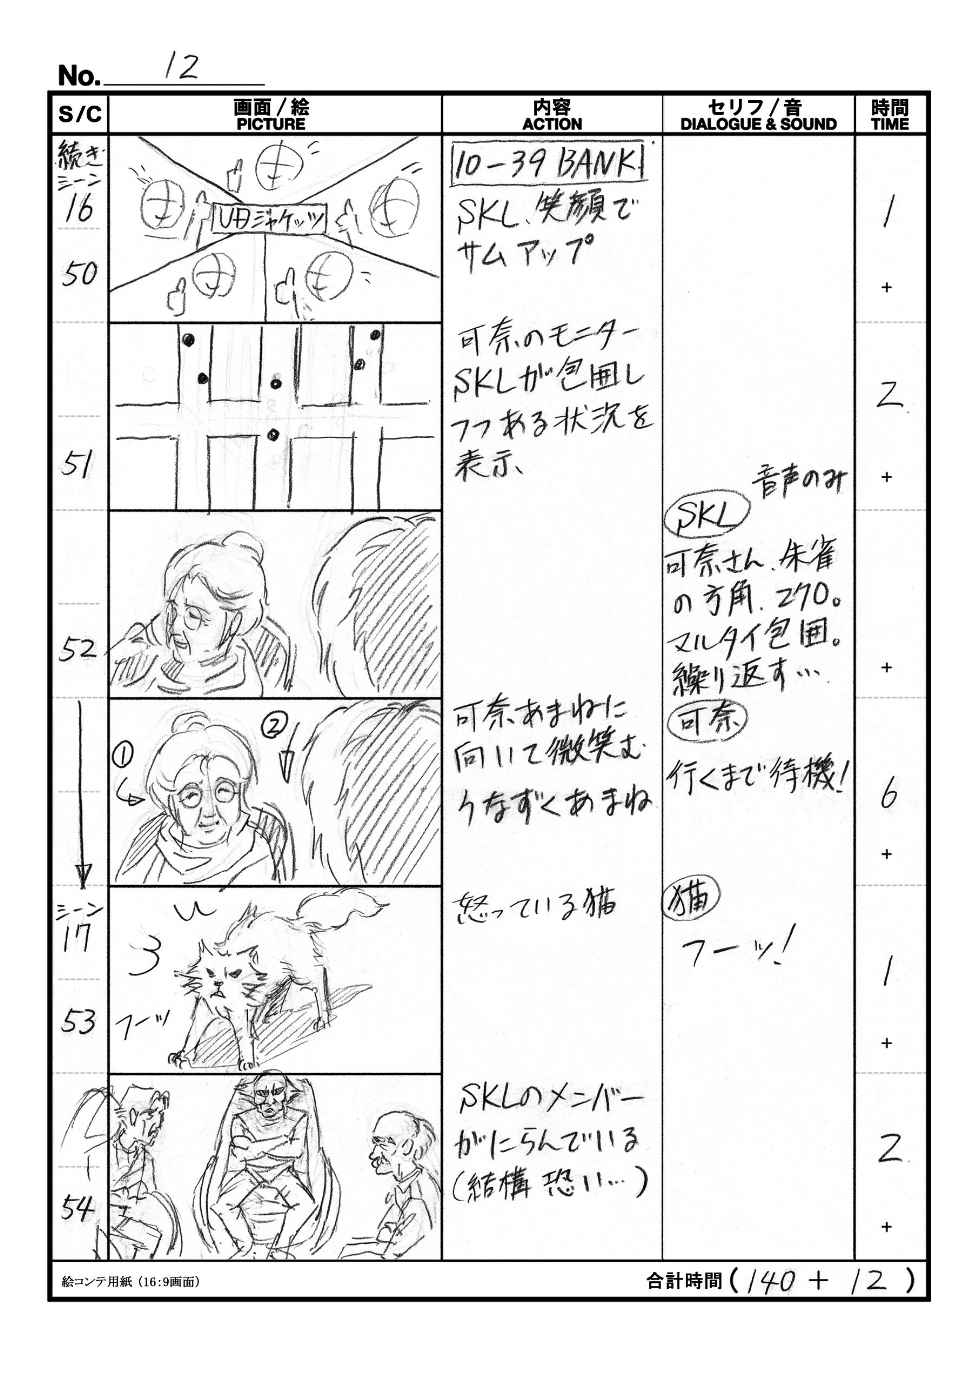 No. 12
S/C
画面/絵
PICTURE
内容
ACTION
セリフ/音
DIALOGUE & SOUND
時間
TIME
続き
シーン
16
50
UFOジャケッツ
10-39 BANK
SKL、笑顔で
サムアップ
1
+
51
可奈のモニター
SKLが包囲し
つつある状況を
表示、
2
+
52
音声のみ
SKL
可奈さん、朱雀
の方角、270。
マルタイ包囲。
繰り返す…
+
①
②
可奈、あまねに
向いて微笑む
うなずくあまね
可奈
行くまで待機!
6
+
シーン
17
53
フーッ
怒っている猫
猫
フーッ!
1
+
54
SKLのメンバー
がにらんでいる
(結構恐い…)
2
+
絵コンテ用紙(16:9画面)
合計時間(140+12)